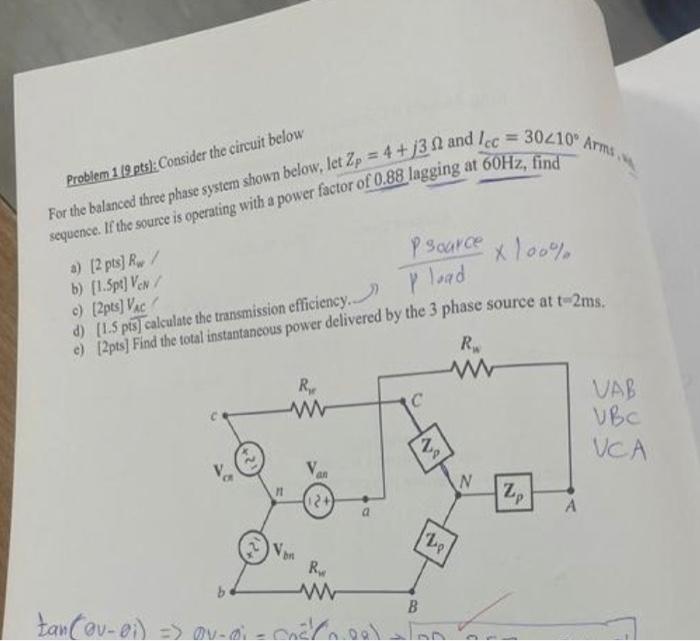 Problem 1 [9 pts]: Consider the circuit below
For the balanced three phase system shown below, let Zp = 4 + j3 Ω and Icc = 30∠10° Arms,
sequence. If the source is operating with a power factor of 0.88 lagging at 60Hz, find
a) [2 pts] Rw /
b) [1.5pt] VCN /
c) [2pts] VAC /
d) [1.5 pts] calculate the transmission efficiency.
P source
P load
x 100%
e) [2pts] Find the total instantaneous power delivered by the 3 phase source at t=2ms.
Rw
Rw
c
C
VAB
VBC
VCA
Zp
Vcn
Van
n
a
N
Zp
A
Vbn
Zp
Rw
b
B
tan(θv-θi) => θv-θi = cos⁻¹(0.88)